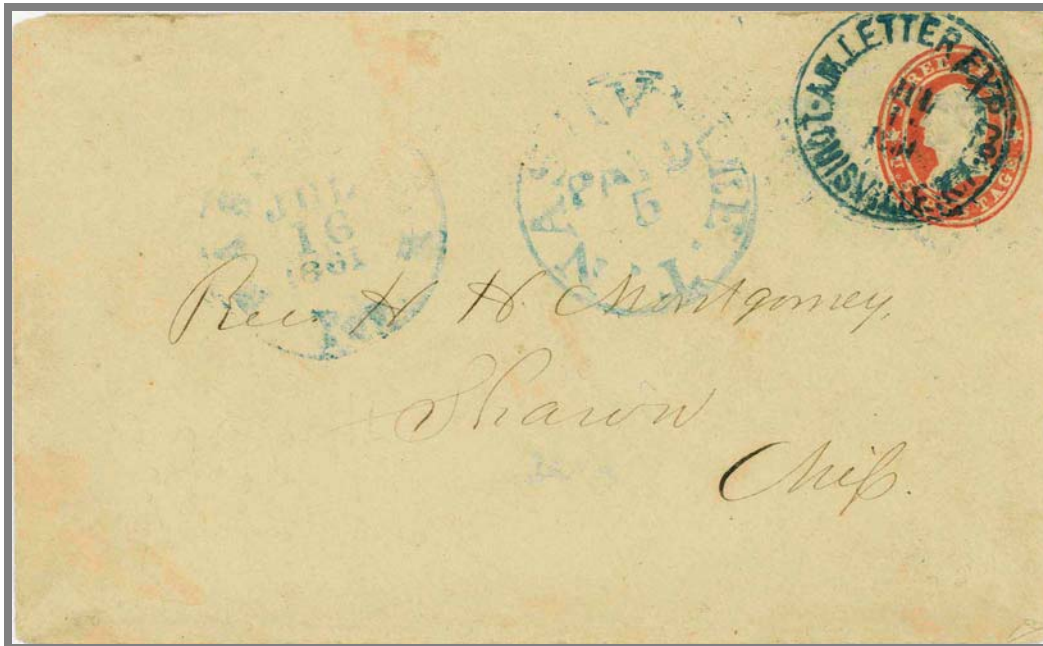 AM. LETTER EXP. CO.
JUL
LOUISVILLE KY.
NASHVILLE. T.
PAID
5
JUL
16
1861
Rev. H H. Montgomey,
Sharon
Miſs.